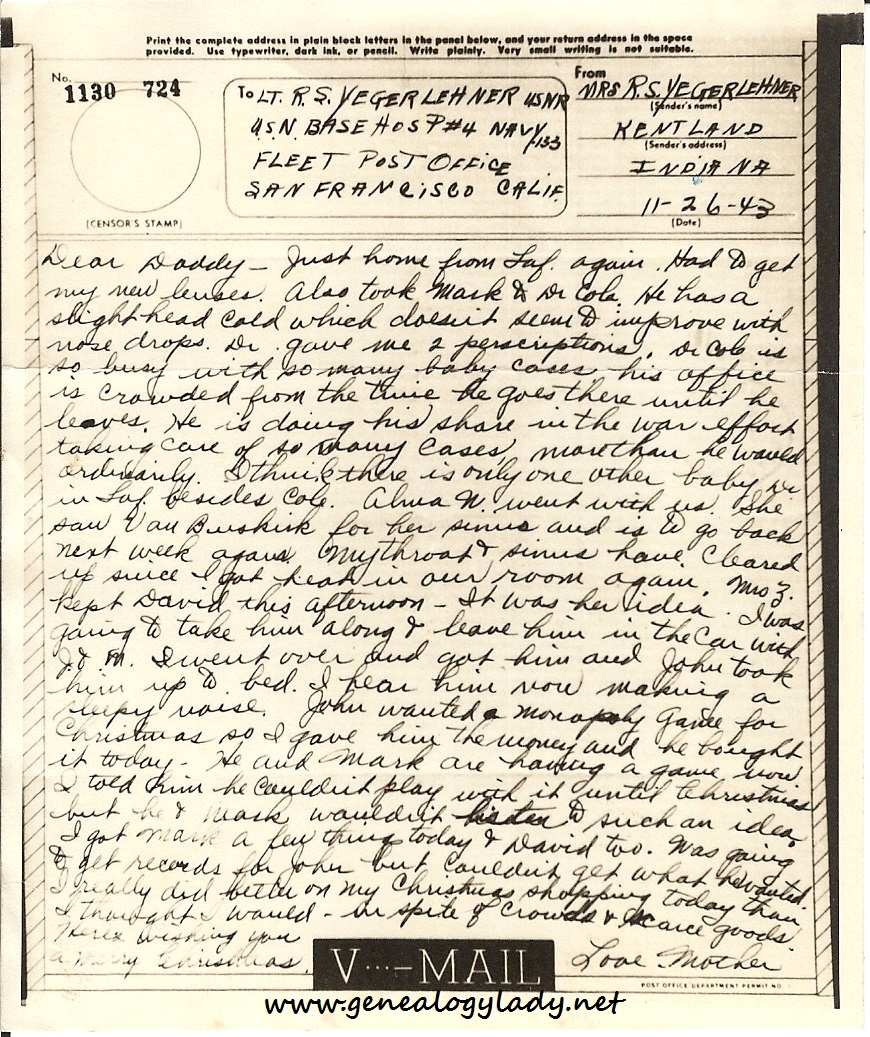 Print the complete address in plain block letters in the panel below, and your return address in the space
provided. Use typewriter, dark ink, or pencil. Write plainly. Very small writing is not suitable.
No.
1130 724
(CENSOR'S STAMP)
To LT. R. S. YEGERLEHNER USNR
U.S.N. BASE HOSP #4 NAVY
133
FLEET POST OFFICE
SAN FRANCISCO CALIF.
From
MRS R.S. YEGERLEHNER
(Sender's name)
KENTLAND
(Sender's address)
INDIANA
11-26-43
(Date)
Dear Daddy - Just home from Laf. again. Had to get
my new lenses. Also took Mark to Dr Cole. He has a
slight head cold which doesn't seem to improve with
nose drops. Dr. gave me 2 perscriptions. Dr Cole is
so busy with so many baby cases his office
is crowded from the time he goes there until he
leaves. He is doing his share in the war effort
taking care of so many cases, more than he would
ordinarily. I think there is only one other baby Dr
in Laf. besides Cole. Alma W. went with us. She
saw Van Buskirk for her sinus and is to go back
next week again. My throat & sinus have cleared
up since I got heat in our room again. Mrs Z.
kept David this afternoon - It was her idea. I was
going to take him along & leave him in the car with
J & M. I went over and got him and John took
him up to bed. I hear him now making a
sleepy noise. John wanted a monopoly Game for
Christmas so I gave him the money and he bought
it today - He and Mark are having a game now
I told him he couldn't play with it until Christmas
but he & Mark wouldn't listen to such an idea.
I got Mark a few things today & David too. Was going
to get records for John but couldn't get what he wanted.
I really did better on my Christmas shopping today than
I thought I would - in spite of crowds & scarce goods.
Here's wishing you
a Merry Christmas.
Love Mother
V···—MAIL
POST OFFICE DEPARTMENT PERMIT NO.
www.genealogylady.net